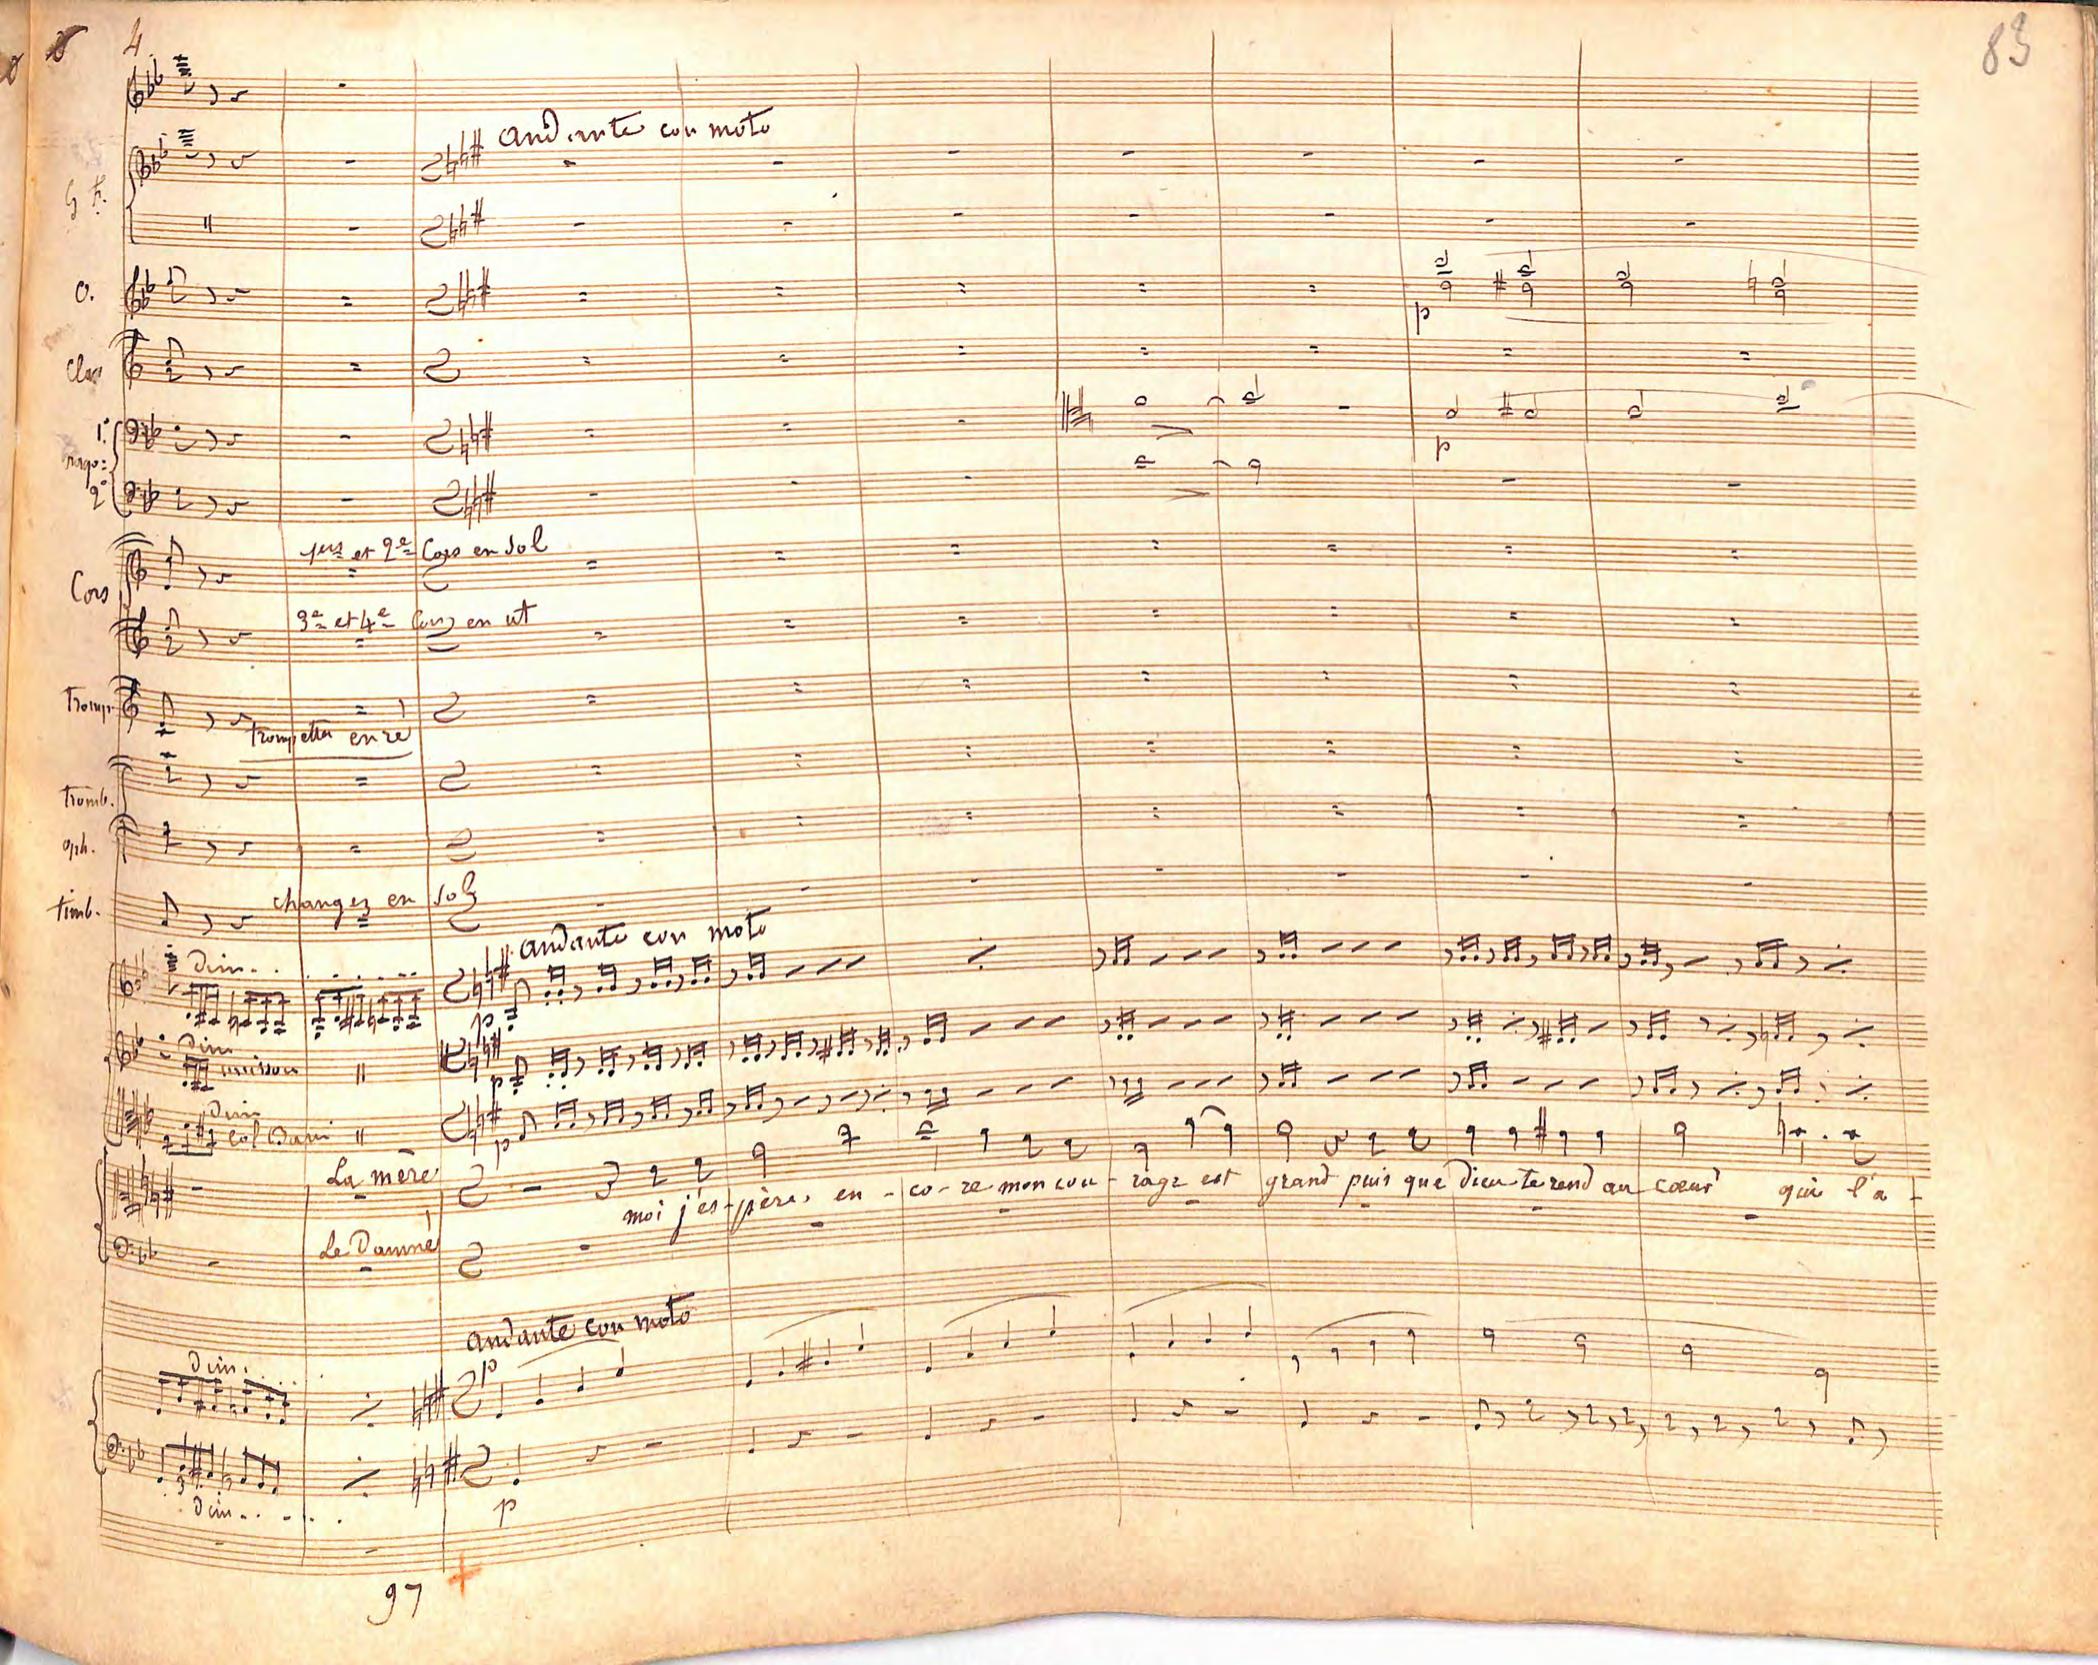 4
83
andante con moto
G f.
O.
Clar
1º
2º
1ers et 2e Cors en sol
Cors
3e et 4e Cors en ut
p
p
Tromp.
trompettes en ré
Tromb.
oph.
Timb.
changez en sol
andante con moto
dim...
p
dim
unisson
p
dim
col Bassi
p
La mère
moi j'es-père, en-co-re mon cou-rage est grand puis que dieu te rend au cœur qui l'a-
Le Damné
andante con moto
dim.
p
dim...
p
97